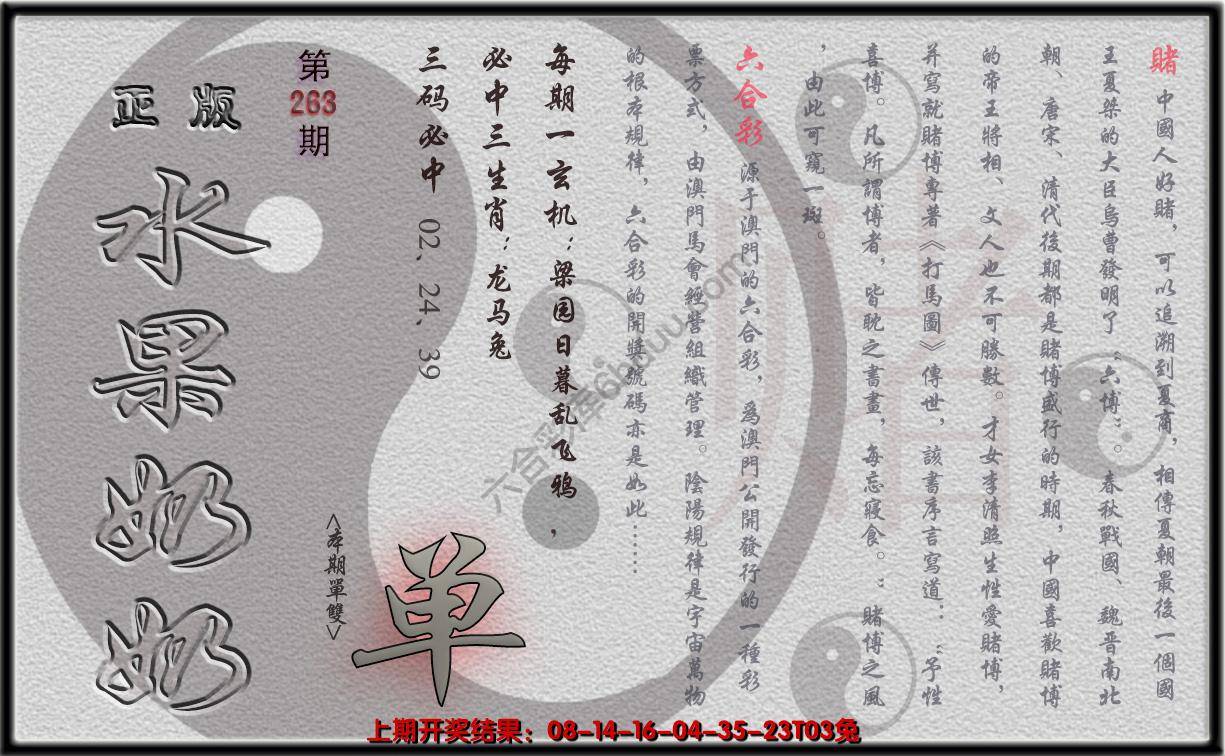 賭 中國人好賭，可以追溯到夏商，相傳夏朝最後一個國
王夏桀的大臣烏曹發明了“六博”。春秋戰國、魏晋南北
朝、唐宋、清代後期都是賭博盛行的時期，中國喜歡賭博
的帝王將相、文人也不可勝數。才女李清照生性愛賭博，
并寫就賭博專著《打馬圖》傳世，該書序言寫道：“予性
喜博。凡所謂博者，皆耽之書畫，每忘寢食。”賭博之風
，由此可窺一斑。
六合彩 源于澳門的六合彩，爲澳門公開發行的一種彩
票方式，由澳門馬會經營組織管理。陰陽規律是宇宙萬物
的根本規律，六合彩的開獎號碼亦是如此……
每期一玄机：梁园日暮乱飞鸦，
必中三生肖：龙马兔
三码必中 02、24、39
第263期
<本期單雙>
单
正版
水果奶奶
六合彩库6huuu.com
上期开奖结果：08-14-16-04-35-23T03兔